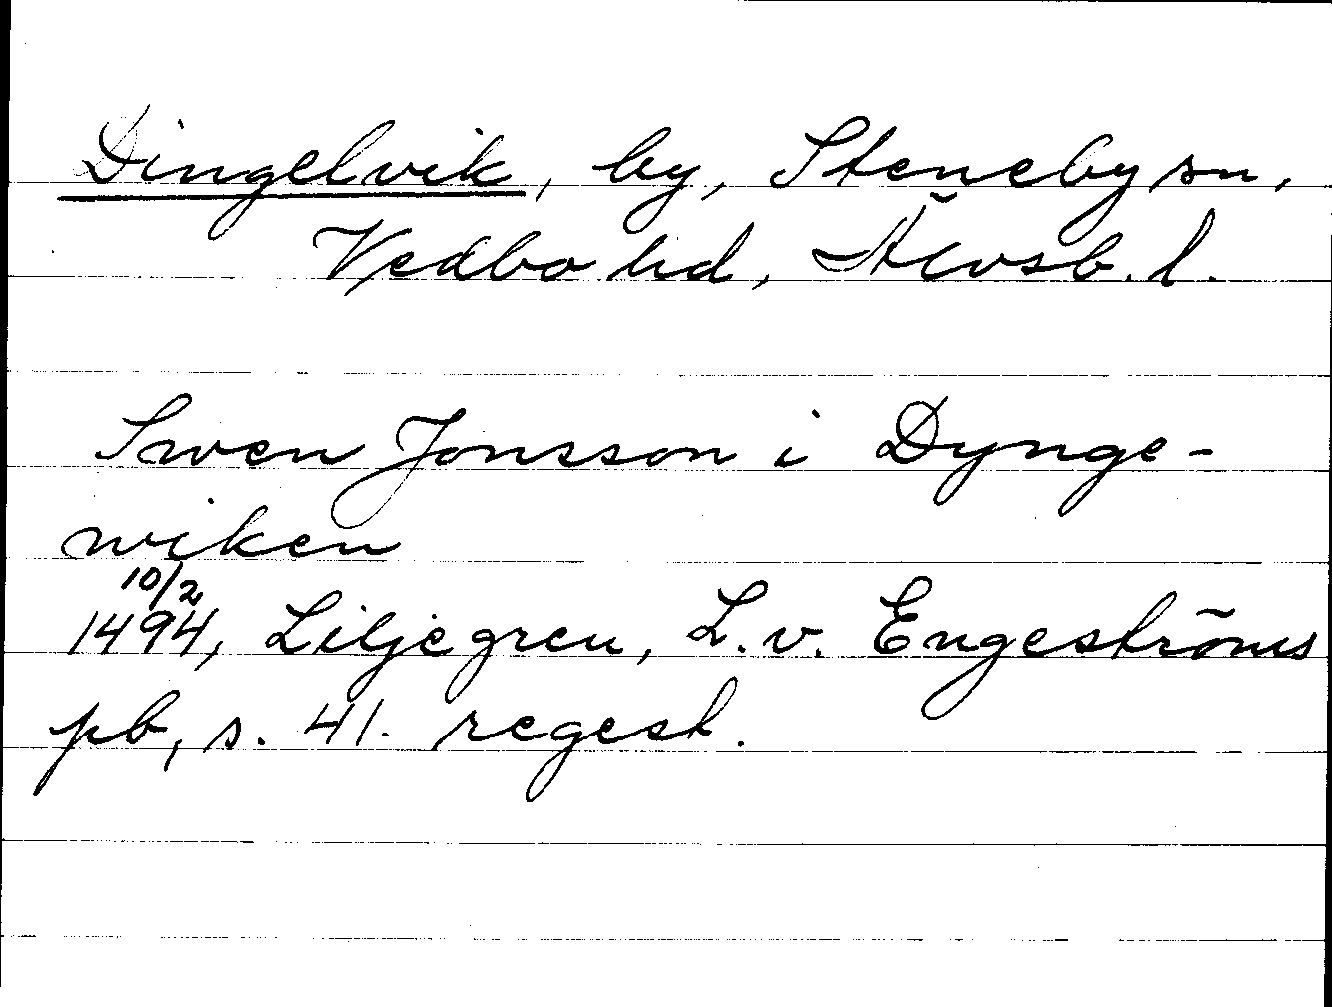 Dingelvik, by, Steneby sn,
Vedbo hd, Älvsb. l.
Swen Jonsson i Dynge-
wiken
10/2
1494, Liljegren, L. v. Engeströms
pb, s. 41. regest.